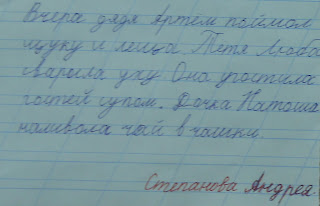 Вчера дядя Артём поймол
щуку и леща. Тётя Люба
сварила уху. Она угостила
гостей супом. Дочка Натоша
наливола чай в чашки.
Степанова Андрея